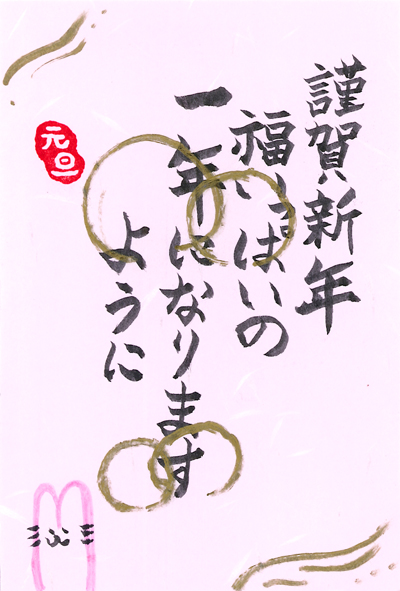 謹賀新年
福いっぱいの
一年になります
ように
元旦